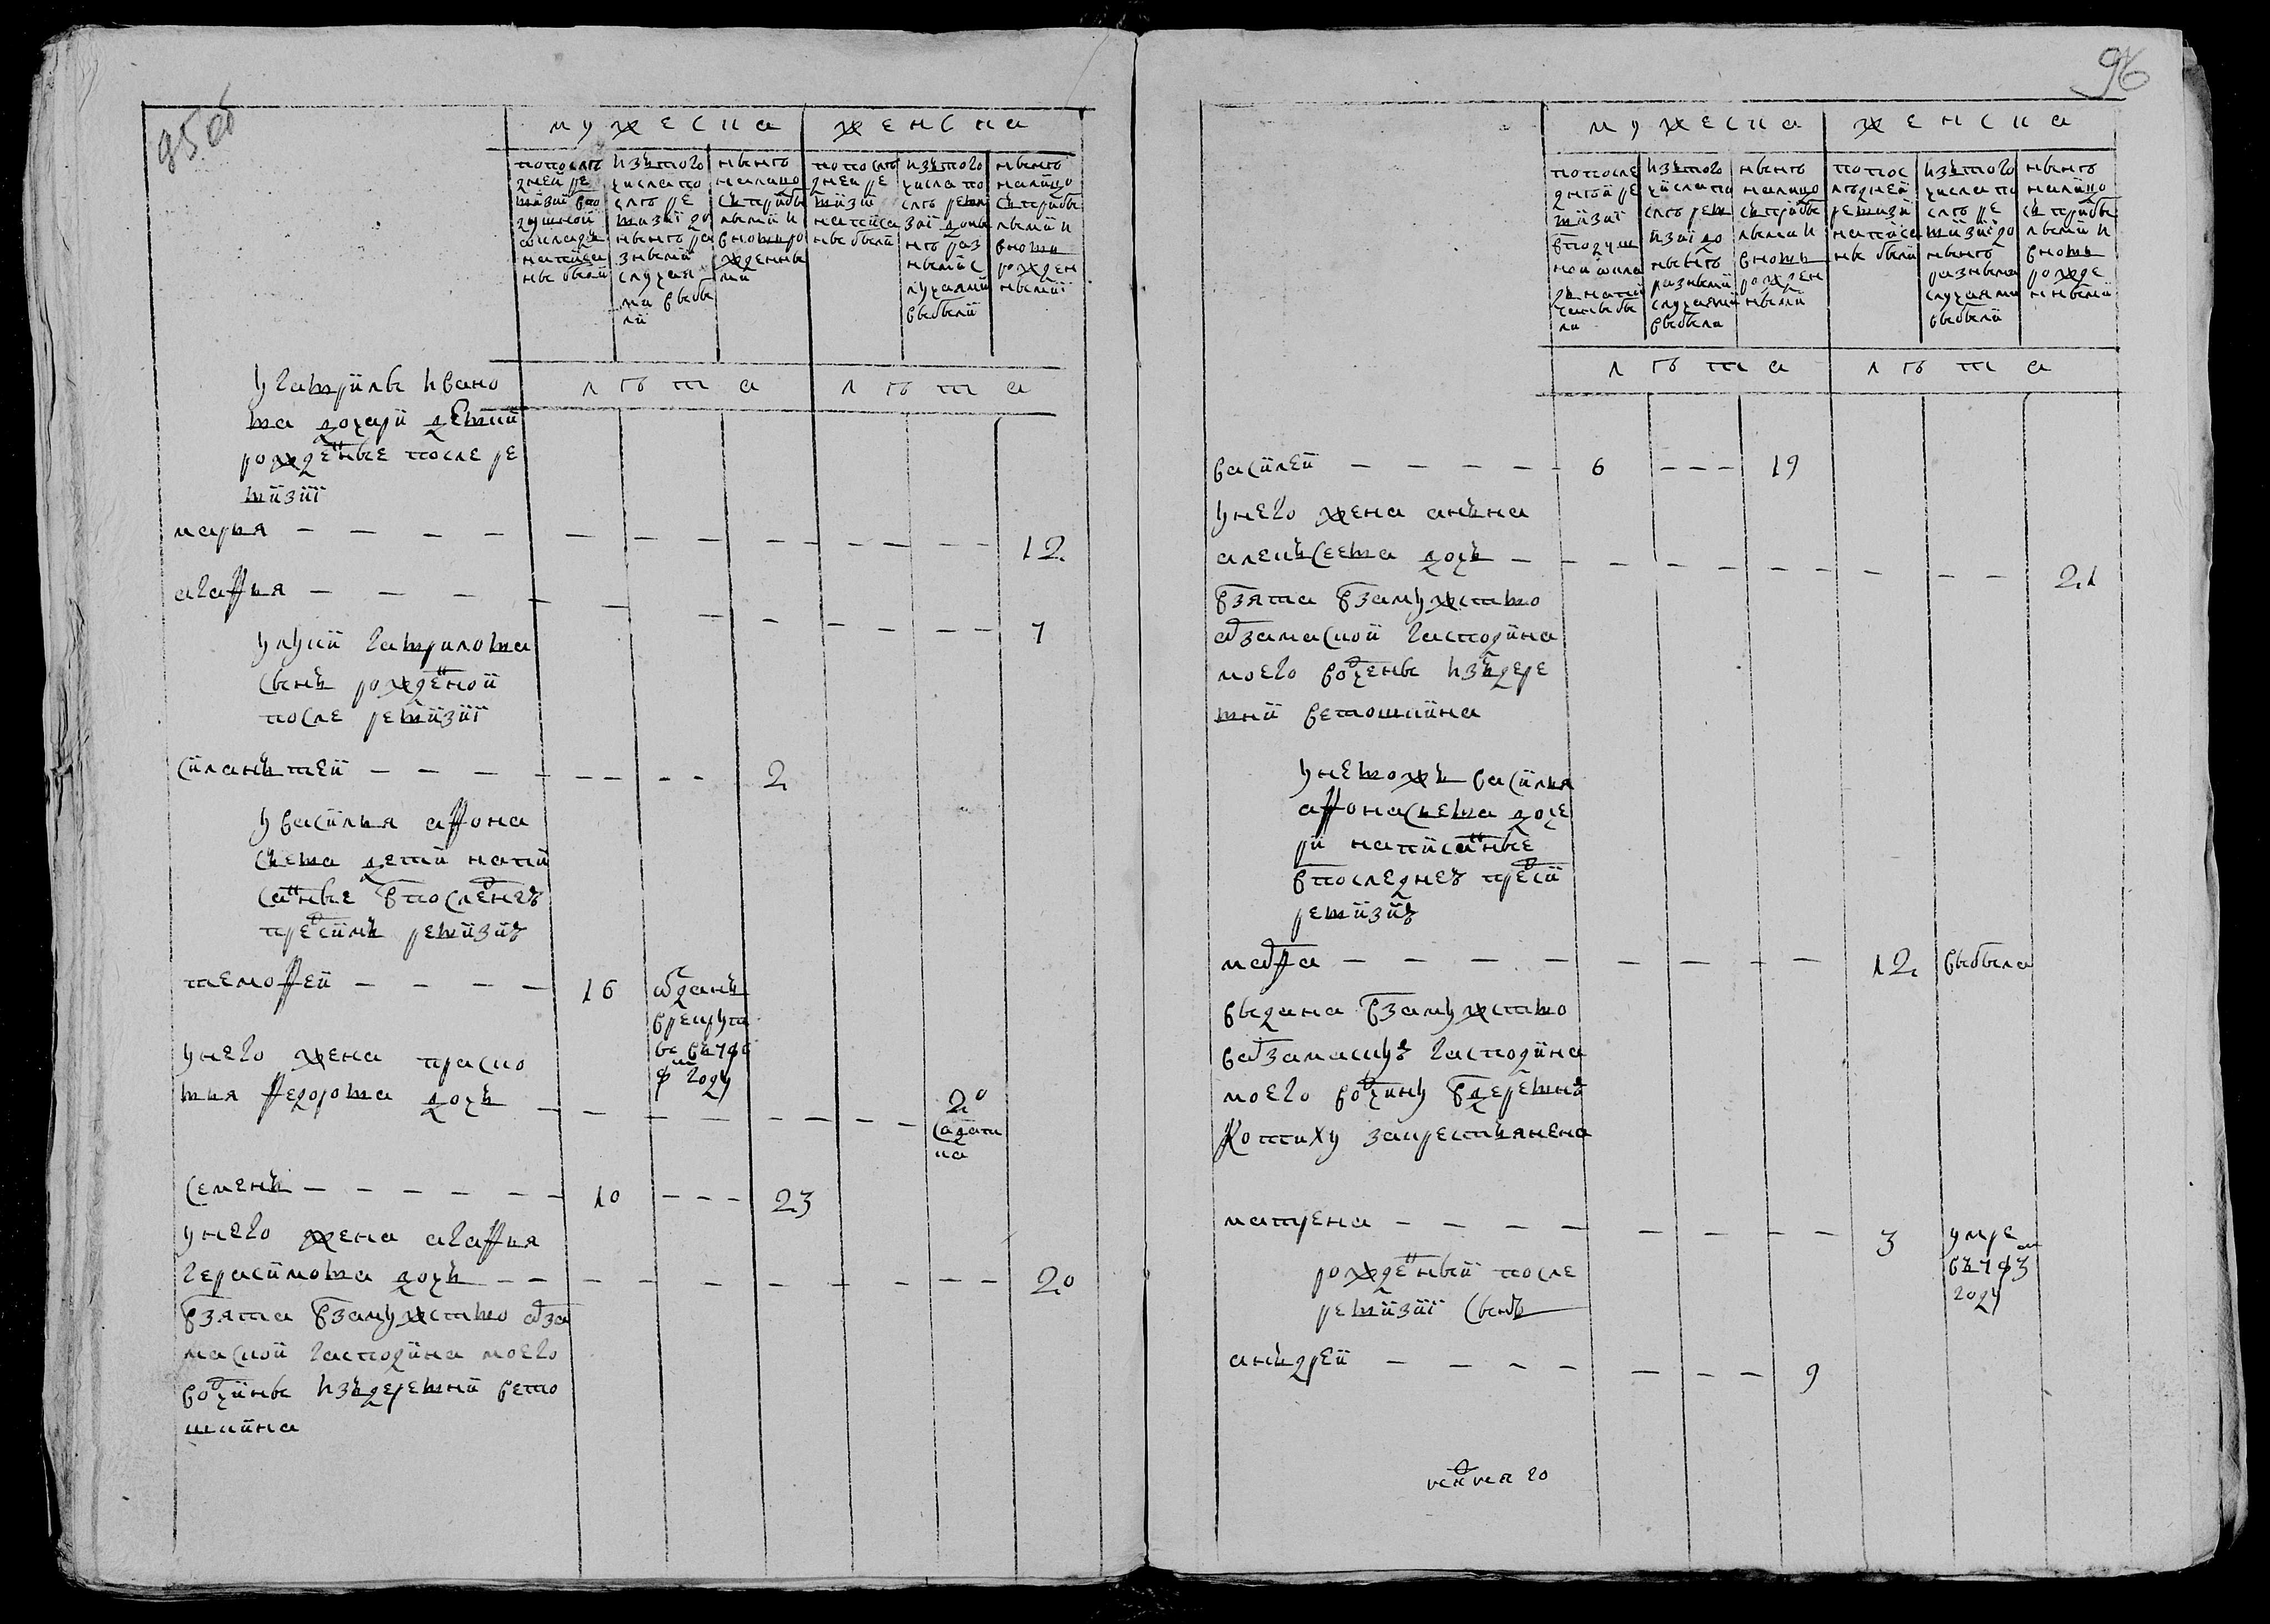 95 об
мужеска женска
попослѣ
дней ре
визиї впо
душной
окладъ
написа
ны были
изътого
числа по
слѣ ре
визиї до
нынѣ ра
зными
случая
ми выбы
ли
нынѣ
налицо
съ прибы
лыми и
вновь ро
жденны
ми
по послѣ
дней ре
визиї
написа
ны были
изътого
числа по
слѣ реви
зиї доны
нѣ раз
ными с
лучаями
выбыли
нынѣ
налицо
съ прибы
лыми и
вновь
рожден
ными
лѣта лѣта
угаврилы ивано
ва дочери детми
рожденые после ре
визиї
марья 12
агафья 7
улуки гаврилова
сынъ рожденой
после ревизиї
силантей 2
увасилья афона
сьева дети напи
саные впоследнеѣ
пресимъ ревизиѣ
темофей 16 отданъ
врекрута
въ
году
унего жена праско
вья федорова дочь 20
салдат
ка
семенъ 10 23
унего жена агафья
герасимова дочь 20
взята взамужство арза
маской господина моего
вотчины изъдеревни вето
шкина
96
мужеска женска
попосле
днѣй ре
визиї
вподуш
ной окла
дъ напи
саны бы
ли
изътого
числа по
слѣ рев
изиї до
нынѣ
разными
случаями
выбыли
нынѣ
налицо
съ прибы
лыми и
вновь
рожден
ными
попос
лѣдней
ревизи
написа
ны были
изътого
числа по
слѣ ре
визиї до
нынѣ
разными
случаями
выбыли
нынѣ
налицо
съ прибы
лыми и
вновь
рожде
нными
лѣта лѣта
василей 6 19
унего жена анъна
алекъсеева дочь 21
взята взамужство
арзамаской господина
моего вотчены изъдере
вни ветошкина
уневожъ василья
афонасьева доче
ри написаные
впоследнеѣ пресй
ревизиѣ
марфа 12 выбыла
выдана взамужство
варзамаскуѣ господина
моего вотчину вдеревнѣ
копиху закрестьянена
матрена 3 умре
въ
году
рожденый после
ревизиї сынъ
анъдрей 9